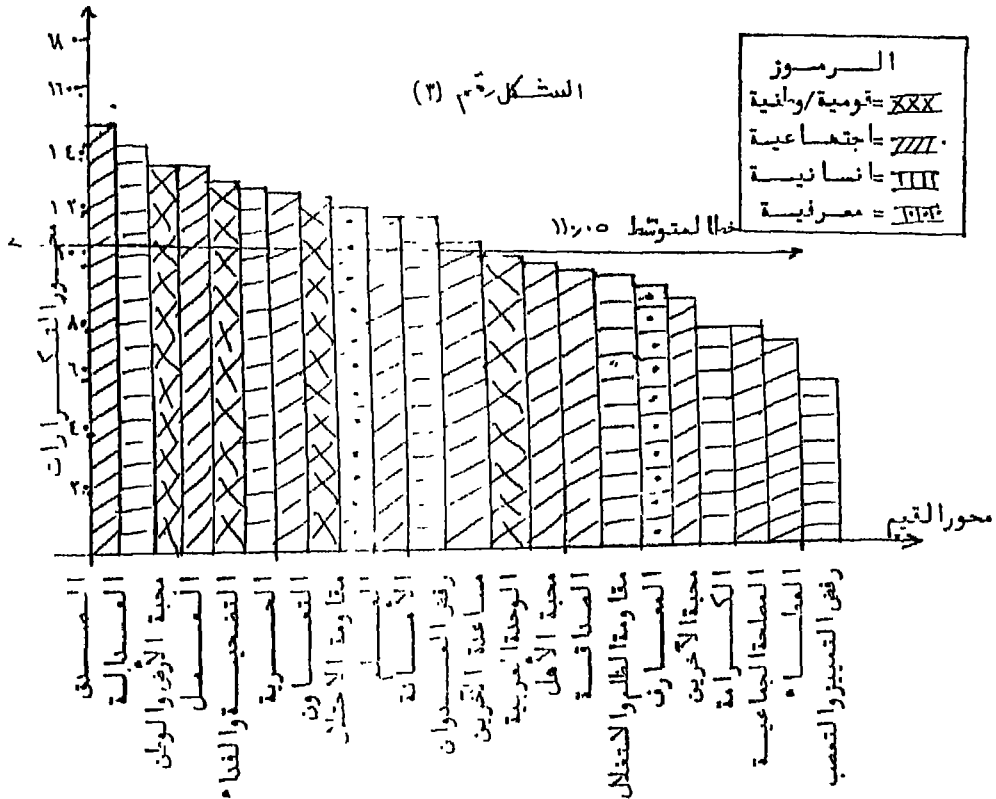 الشكل رقم (٣)
الرموز
قومية/وطنية =
اجتماعية =
انسانية =
معرفية =
خط المتوسط ١١٠,٠٥
محور التكرارات
١٦٠
١٤٠
١٢٠
١٠٠
٨٠
٦٠
٤٠
٢٠
محور القيم
الصدق
العدالة
محبة الأرض والوطن
العمل
التضحية والفداء
الحرية
التعاون
مقاومة الاحتلال
الأمانة
رفض العدوان
مساعدة الآخرين
الوحدة العربية
محبة الأهل
الصداقة
مقاومة الظلم والاستغلال
المعارف
محبة الآخرين
الكرامة
المصلحة الجماعية
رفض التمييز والتعصب